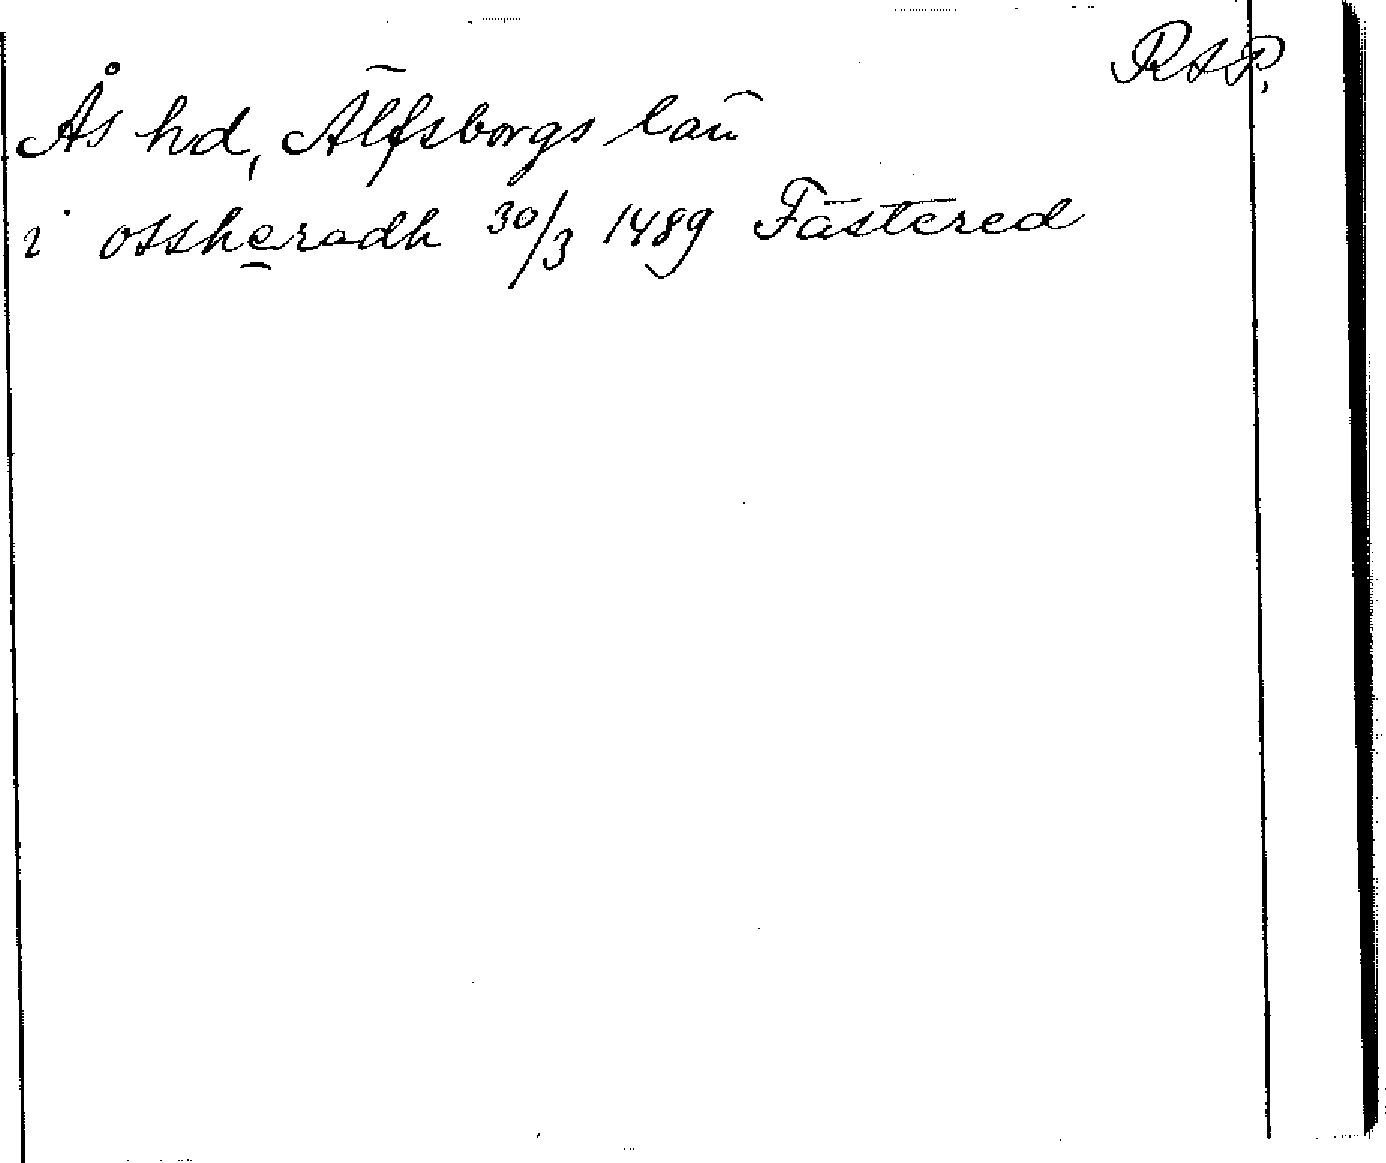 RAP.
Ås hd, Älfsborgs län
i ossheradh 30/3 1489 Fästered